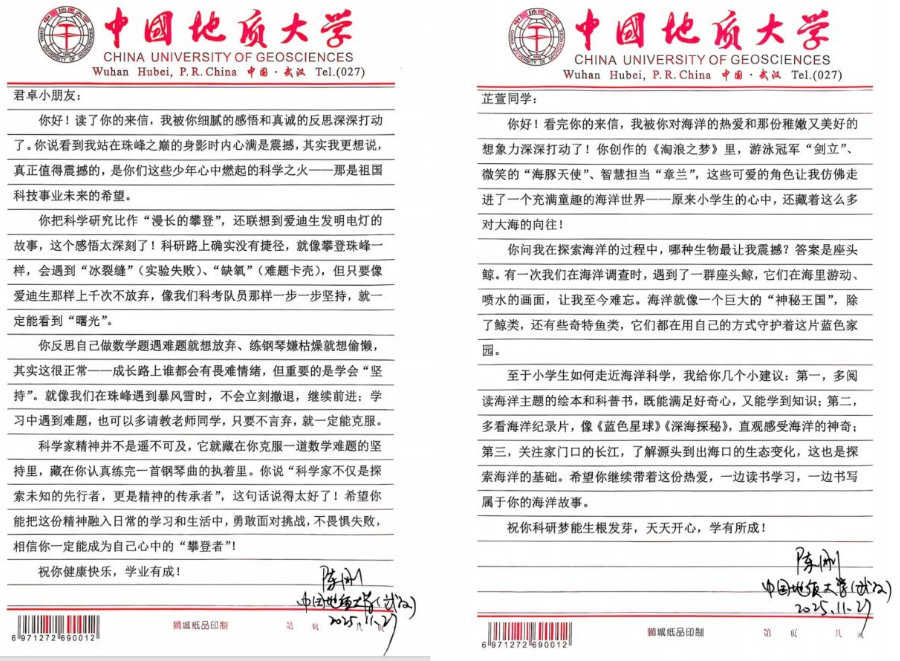 中国地质大学
CHINA UNIVERSITY OF GEOSCIENCES
Wuhan Hubei, P.R.China 中国·武汉 Tel.(027)
君卓小朋友：
你好！读了你的来信，我被你细腻的感悟和真诚的反思深深打动
了。你说看到我站在珠峰之巅的身影时内心满是震撼，其实我更想说，
真正值得震撼的，是你们这些少年心中燃起的科学之火——那是祖国
科技事业未来的希望。
你把科学研究比作“漫长的攀登”，还联想到爱迪生发明电灯的
故事，这个感悟太深刻了！科研路上确实没有捷径，就像攀登珠峰一
样，会遇到“冰裂缝”（实验失败）、“缺氧”（难题卡壳），但只要像
爱迪生那样上千次不放弃，像我们科考队员那样一步一步坚持，就一
定能看到“曙光”。
你反思自己做数学题遇难题就想放弃、练钢琴嫌枯燥就想偷懒，
其实这很正常——成长路上谁都会有畏难情绪，但重要的是学会“坚
持”。就像我们在珠峰遇到暴风雪时，不会立刻撤退，继续前进；学
习中遇到难题，也可以多请教老师同学，只要不言弃，就一定能克服。
科学家精神并不是遥不可及，它就藏在你克服一道数学难题的坚
持里，藏在你认真练完一首钢琴曲的执着里。你说“科学家不仅是探
索未知的先行者，更是精神的传承者”，这句话说得太好了！希望你
能把这份精神融入日常的学习和生活中，勇敢面对挑战，不畏惧失败，
相信你一定能成为自己心中的“攀登者”！
祝你健康快乐，学业有成！
陈刚
中国地质大学（武汉）
2025.11.27
6 971272 690012
狮城纸品印制
第 页 共 页
中国地质大学
CHINA UNIVERSITY OF GEOSCIENCES
Wuhan Hubei, P.R.China 中国·武汉 Tel.(027)
芷萱同学：
你好！看完你的来信，我被你对海洋的热爱和那份稚嫩又美好的
想象力深深打动了！你创作的《淘浪之梦》里，游泳冠军“剑立”、
微笑的“海豚天使”、智慧担当“章兰”，这些可爱的角色让我仿佛走
进了一个充满童趣的海洋世界——原来小学生的心中，还藏着这么多
对大海的向往！
你问我在探索海洋的过程中，哪种生物最让我震撼？答案是座头
鲸。有一次我们在海洋调查时，遇到了一群座头鲸，它们在海里游动、
喷水的画面，让我至今难忘。海洋就像一个巨大的“神秘王国”，除
了鲸类，还有些奇特鱼类，它们都在用自己的方式守护着这片蓝色家
园。
至于小学生如何走近海洋科学，我给你几个小建议：第一，多阅
读海洋主题的绘本和科普书，既能满足好奇心，又能学到知识；第二，
多看海洋纪录片，像《蓝色星球》《深海探秘》，直观感受海洋的神奇；
第三，关注家门口的长江，了解源头到出海口的生态变化，这也是探
索海洋的基础。希望你继续带着这份热爱，一边读书学习，一边书写
属于你的海洋故事。
祝你科研梦能生根发芽，天天开心，学有所成！
陈刚
中国地质大学（武汉）
2025.11.27
6 971272 690012
狮城纸品印制
第 页 共 页